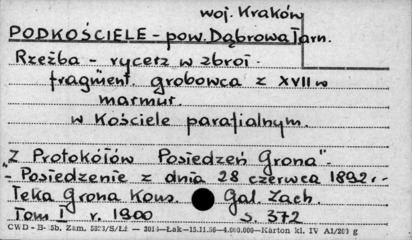 woj. Kraków
PODKOŚCIELE - pow. Dąbrowa Tarn.
Rzeźba - rycerz w zbroi -
fragment. grobowca z XVII w
marmur.
w Kościele parafialnym.
"Z Protokółów Posiedzeń Grona".
- Posiedzenie z dnia 28 czerwca 1892r.-
Teka Grona Kons. Gal. Zach.
Tom I r. 1900 s. 372
CWD - B- 5b. Zam. /S/Łż — Łak—15.11.56—4.000.000—Karton kl. IV A1/200 g